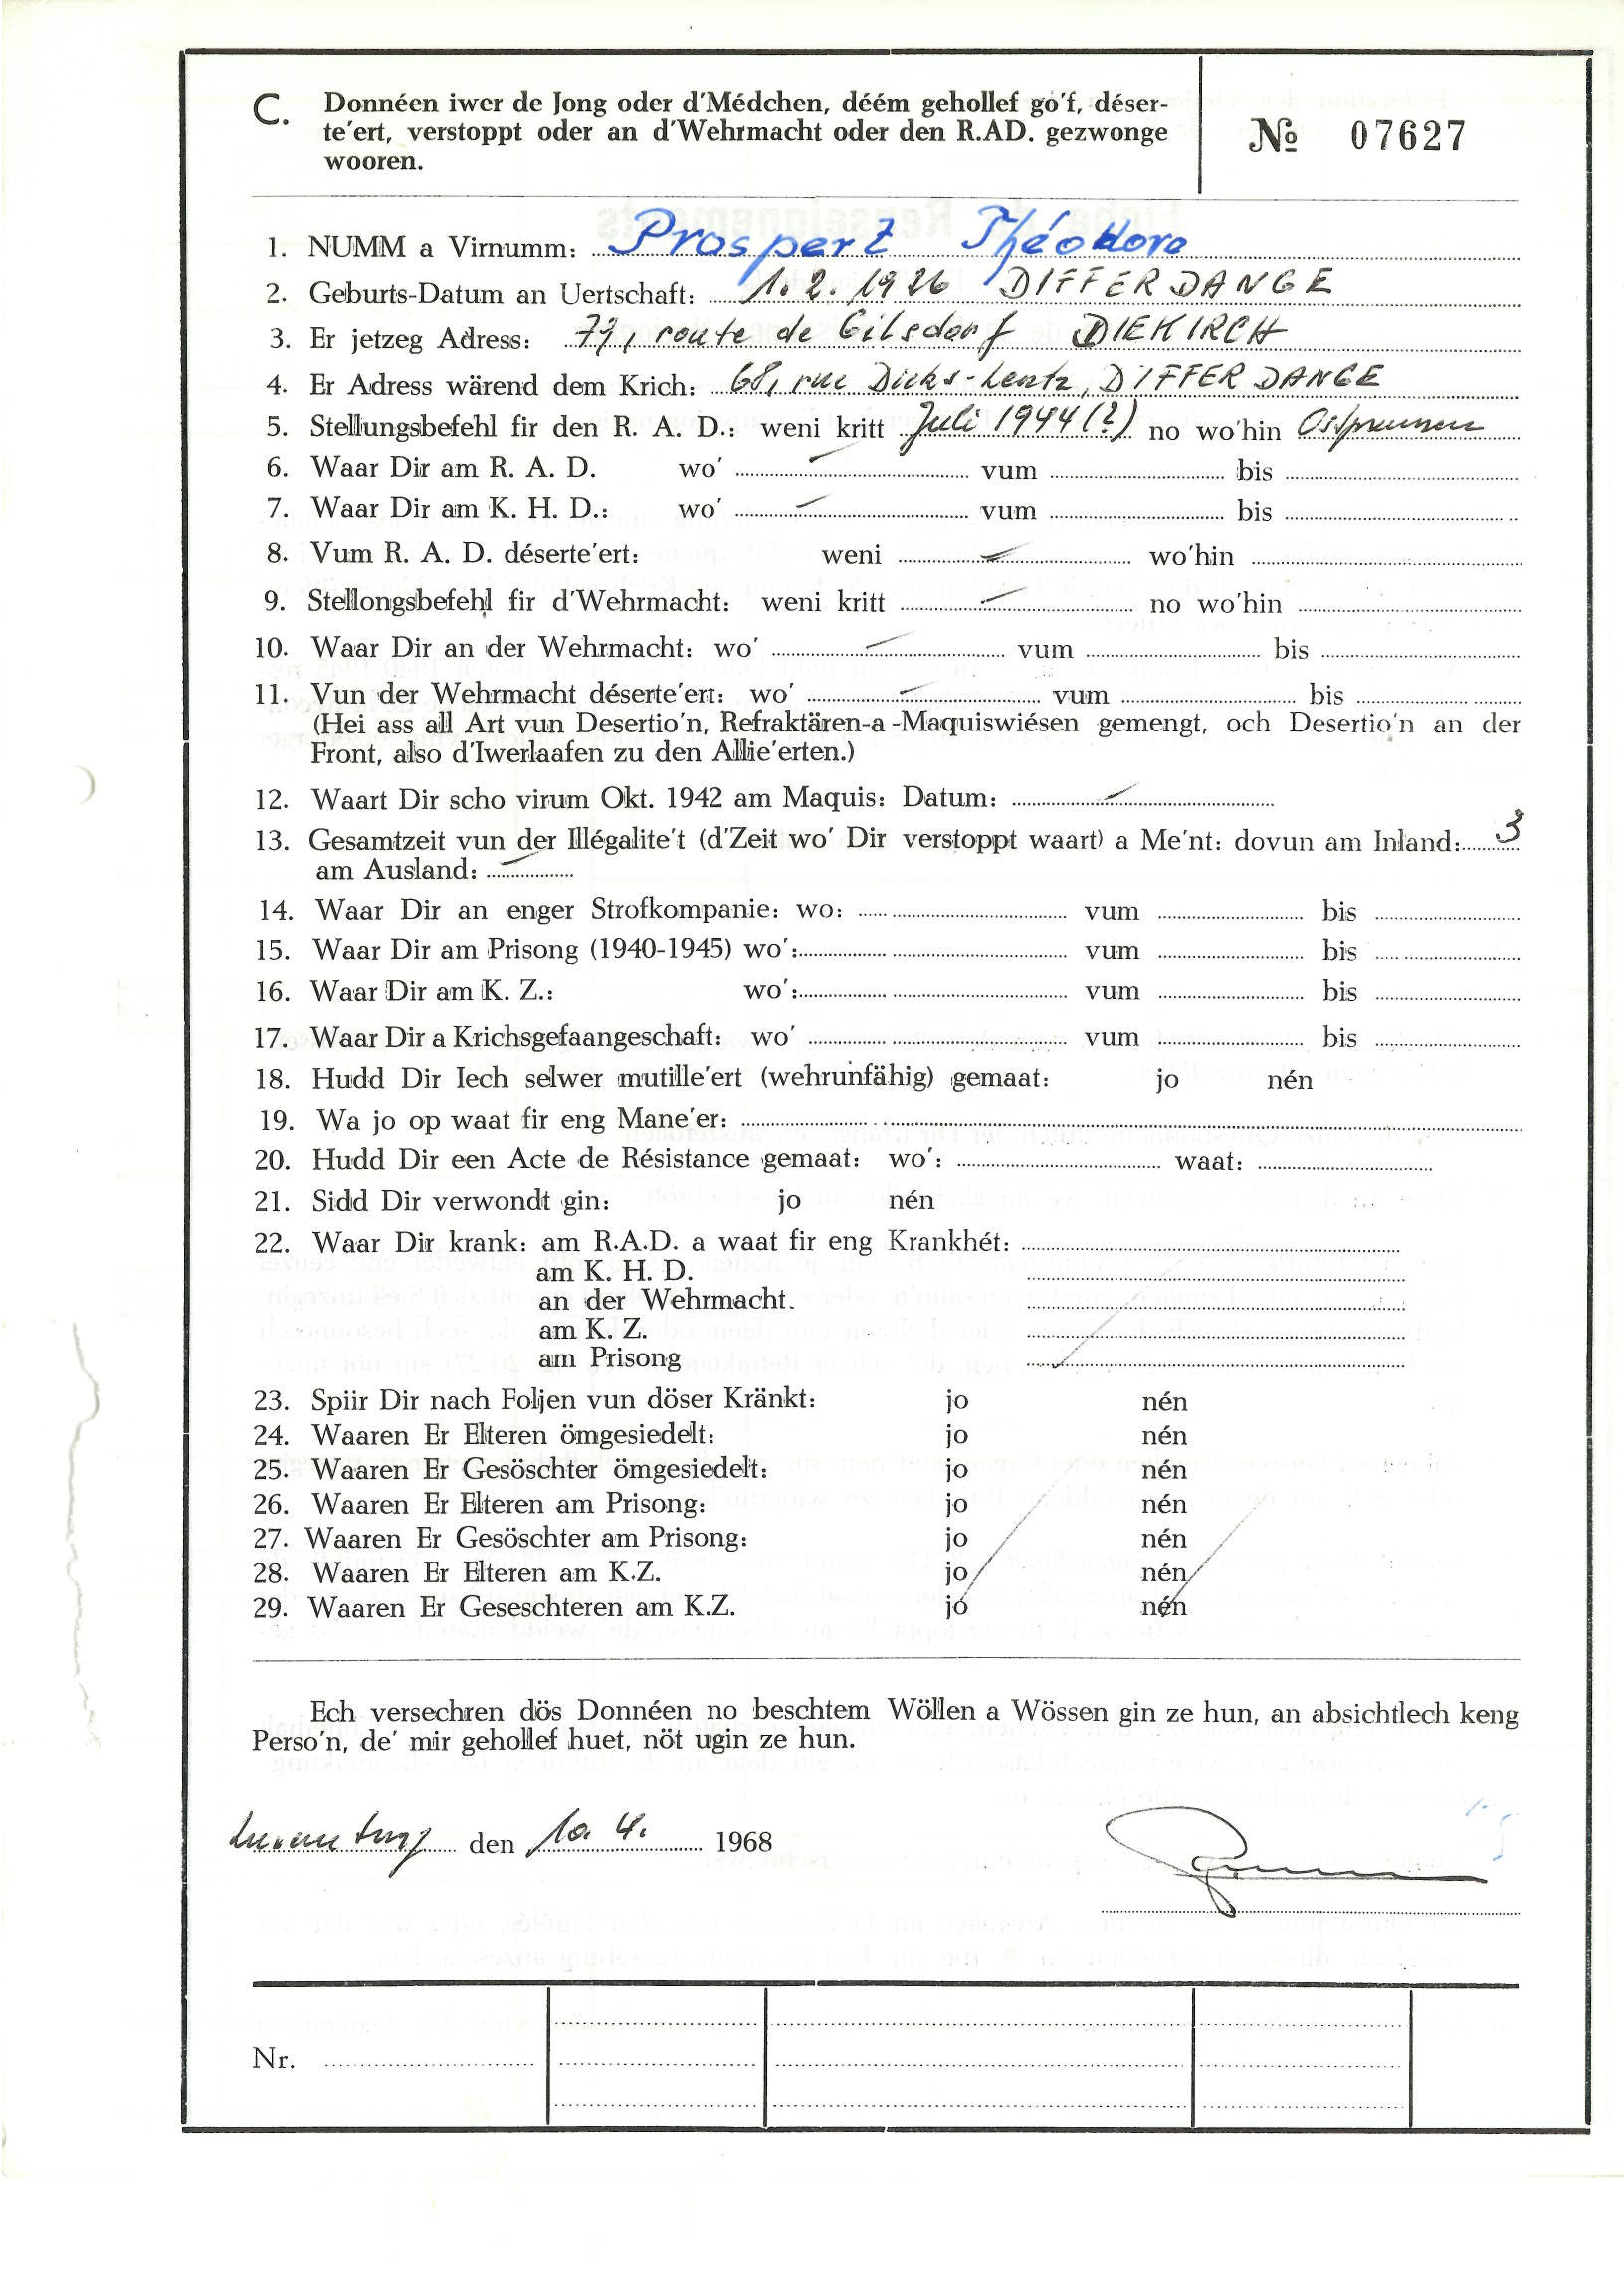 C. Donnéen iwer de Jong oder d'Médchen, déém gehollef go'f, déser-
te'ert, verstoppt oder an d'Wehrmacht oder den R.AD. gezwonge
wooren.
№ 07627
1. NUMM a Virnumm: Prospert Théodore
2. Geburts-Datum an Uertschaft: 1.2.1926 DIFFERDANGE
3. Er jetzeg Adress: 77, route de Gilsdorf DIEKIRCH
4. Er Adress wärend dem Krich: 68, rue Dicks-Lentz, DIFFERDANGE
5. Stellungsbefehl fir den R. A. D.: weni kritt Juli 1944 (?) no wo'hin Ostpreussen
6. Waar Dir am R. A. D. wo' vum bis
7. Waar Dir am K. H. D.: wo' vum bis
8. Vum R. A. D. déserte'ert: weni wo'hin
9. Stellongsbefehl fir d'Wehrmacht: weni kritt no wo'hin
10. Waar Dir an der Wehrmacht: wo' vum bis
11. Vun der Wehrmacht déserte'ert: wo' vum bis
(Hei ass all Art vun Desertio'n, Refraktären-a -Maquiswiésen gemengt, och Desertio'n an der
Front, also d'Iwerlaafen zu den Allie'erten.)
12. Waart Dir scho virum Okt. 1942 am Maquis: Datum:
13. Gesamtzeit vun der Illégalite't (d'Zeit wo' Dir verstoppt waart) a Me'nt: dovun am Inland: 3
am Ausland:
14. Waar Dir an enger Strofkompanie: wo: vum bis
15. Waar Dir am Prisong (1940-1945) wo': vum bis
16. Waar Dir am K. Z.: wo': vum bis
17. Waar Dir a Krichsgefaangeschaft: wo' vum bis
18. Hudd Dir Iech selwer mutille'ert (wehrunfähig) gemaat: jo nén
19. Wa jo op waat fir eng Mane'er:
20. Hudd Dir een Acte de Résistance gemaat: wo': waat:
21. Sidd Dir verwondt gin: jo nén
22. Waar Dir krank: am R.A.D. a waat fir eng Krankhét:
am K. H. D.
an der Wehrmacht.
am K. Z.
am Prisong
23. Spiir Dir nach Foljen vun döser Kränkt: jo nén
24. Waaren Er Elteren ömgesiedelt: jo nén
25. Waaren Er Gesöschter ömgesiedelt: jo nén
26. Waaren Er Elteren am Prisong: jo nén
27. Waaren Er Gesöschter am Prisong: jo nén
28. Waaren Er Elteren am K.Z. jo nén
29. Waaren Er Geseschteren am K.Z. jo nén
Ech versechren dös Donnéen no beschtem Wöllen a Wössen gin ze hun, an absichtlech keng
Perso'n, de' mir gehollef huet, nöt ugin ze hun.
Luxemburg den 10. 4. 1968
Nr.